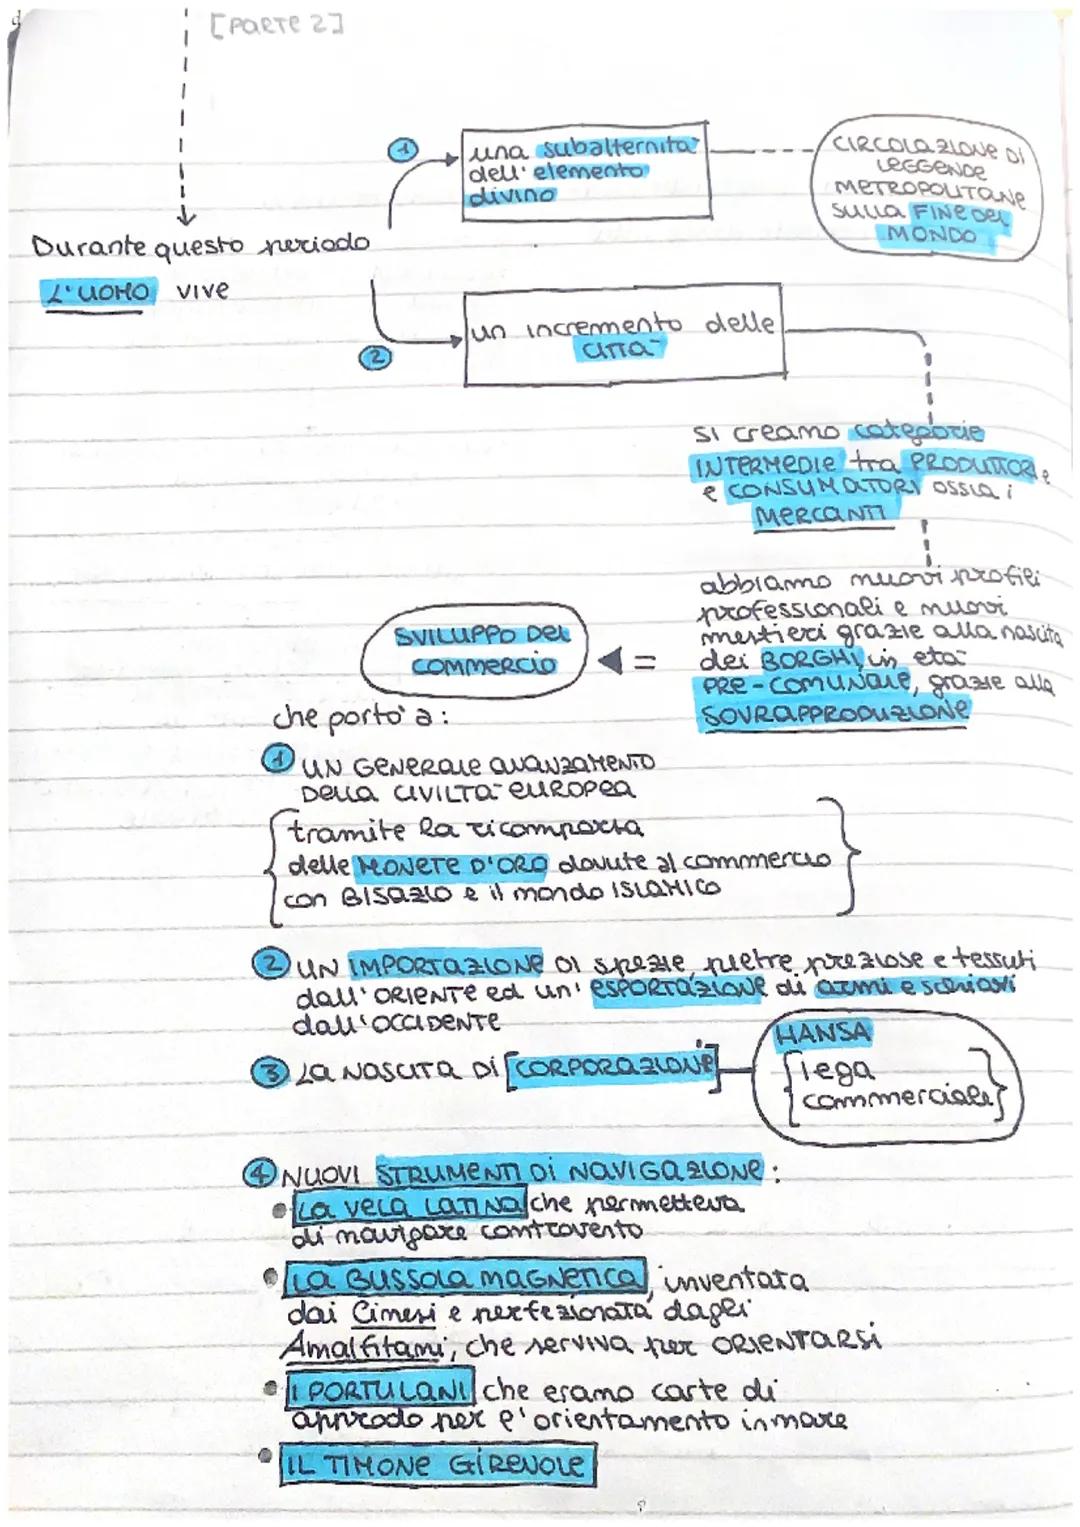 [PARTE 2]
1
una subalternità
dell'elemento
divino
CIRCOLAZIONE DI
LEGGENDE
METROPOLITANE
SULLA FINE DEL
MONDO
Durante questo periodo
L'UOMO vive
2
un incremento delle
CITTÀ
si creano categorie
INTERMEDIE tra PRODUTTORI
e CONSUMATORI ossia i
MERCANTI
abbiamo nuovi profili
professionali e nuovi
mestieri grazie alla nascita
dei BORGHI in età
PRE-COMUNALE, grazie alla
SOVRAPPRODUZIONE
=
SVILUPPO DEL
COMMERCIO
che portò a:
1 UN GENERALE AVANZAMENTO
DELLA CIVILTÀ EUROPEA
tramite la ricomparsa
delle MONETE D'ORO dovute al commercio
con BISAZIO e il mondo ISLAMICO
2 UN IMPORTAZIONE DI spezie, pietre preziose e tessuti
dall'ORIENTE ed un'ESPORTAZIONE di armi e schiavi
dall'OCCIDENTE
3 LA NASCITA DI [CORPORAZIONE]
HANSA
{lega
commerciale}
4 NUOVI STRUMENTI DI NAVIGAZIONE:
• LA VELA LATINA che permetteva
di navigare controvento
• LA BUSSOLA MAGNETICA, inventata
dai Cinesi e perfezionata dagli
Amalfitani, che serviva per ORIENTARSI
• I PORTULANI che erano carte di
approdo per l'orientamento in mare
• IL TIMONE GIREVOLE